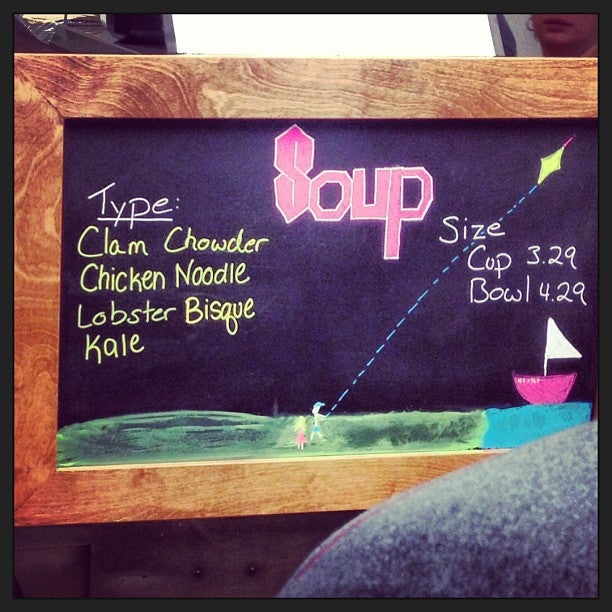 Soup
Type:
Clam Chowder
Chicken Noodle
Lobster Bisque
Kale
Size
Cup 3.29
Bowl 4.29